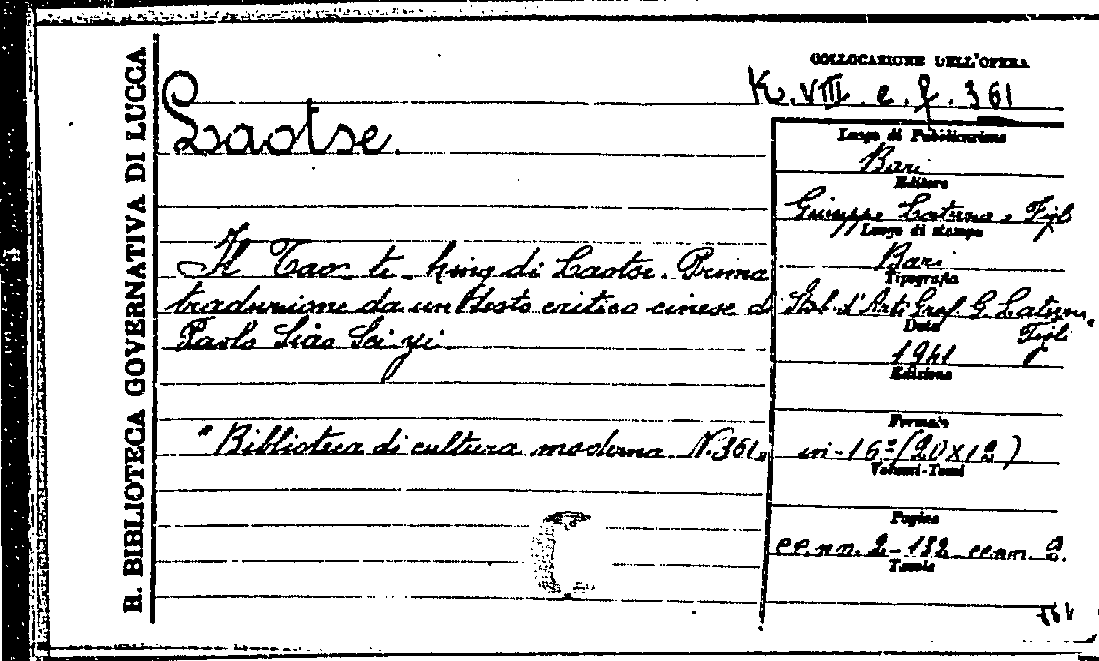 R. BIBLIOTECA GOVERNATIVA DI LUCCA
COLLOCAZIONE DELL'OPERA
K. VIII. e. f. 361
Laotse.
Il Tao te-king di Laotse. Prima
traduzione da un testo critico cinese di
Paolo Siao Sci-yi
"Biblioteca di cultura moderna N. 361"
Luogo di Pubblicazione
Bari
Editore
Giuseppe Laterza e Figli
Luogo di stampa
Bari
Tipografia
Stab. d'Arti Graf. G. Laterza
Figli
Data
1941
Edizione
Formato
in-16º (20x12)
Volumi-Tomi
Pagine
cc.nn. 2-182 cc.nn. 2.
Tavole